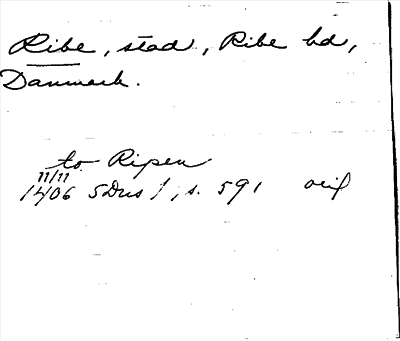 Ribe, stad, Ribe hd,
Danmark.
to Ripen
11/11
1406 SDns 1, s. 591 orig